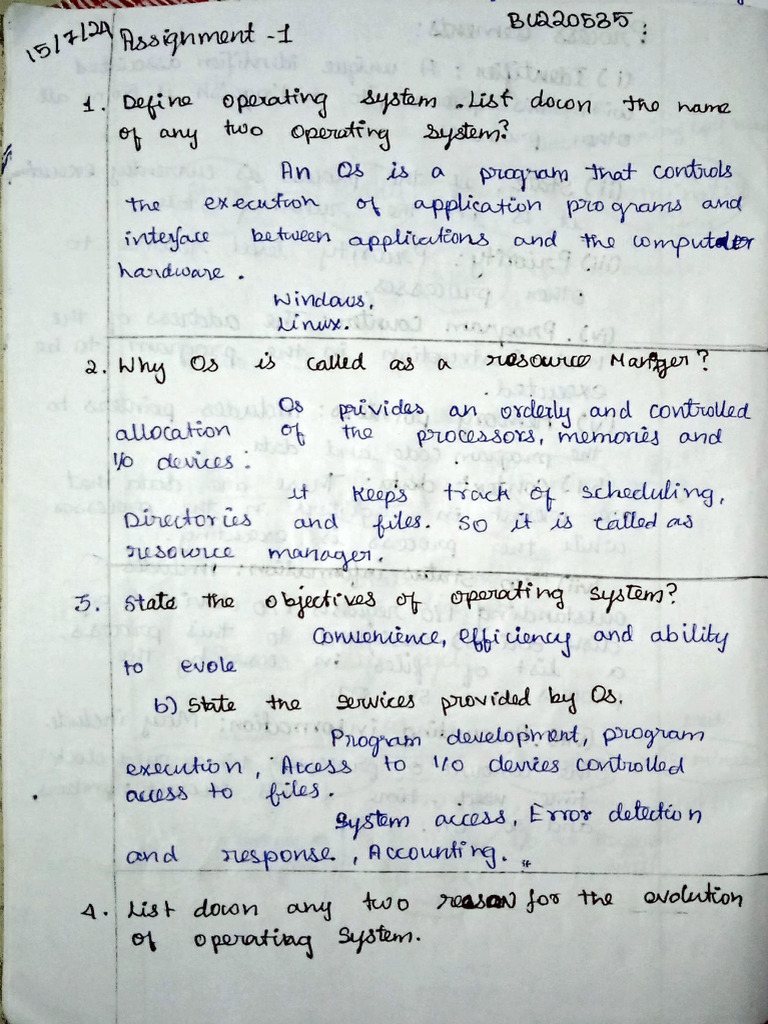 BU220535 :
15/7/24 Assignment -1
1. Define operating system. List down the name
of any two operating system?
An Os is a program that controls
the execution of application programs and
interface between applications and the computer
hardware.
Windows,
Linux.
2. Why Os is called as a resource Manager?
Os privides an orderly and controlled
allocation of the processors, memories and
I/o devices:
it keeps track of scheduling,
Directories and files. So it is called as
resource manager.
3. State the objectives of operating system?
Convenience, efficiency and ability
to evole
b) State the services provided by Os.
Program development, program
execution, Access to I/o devices controlled
access to files.
System access, Error detection
and response, Accounting.
4. List down any two reason for the evolution
of operating system.